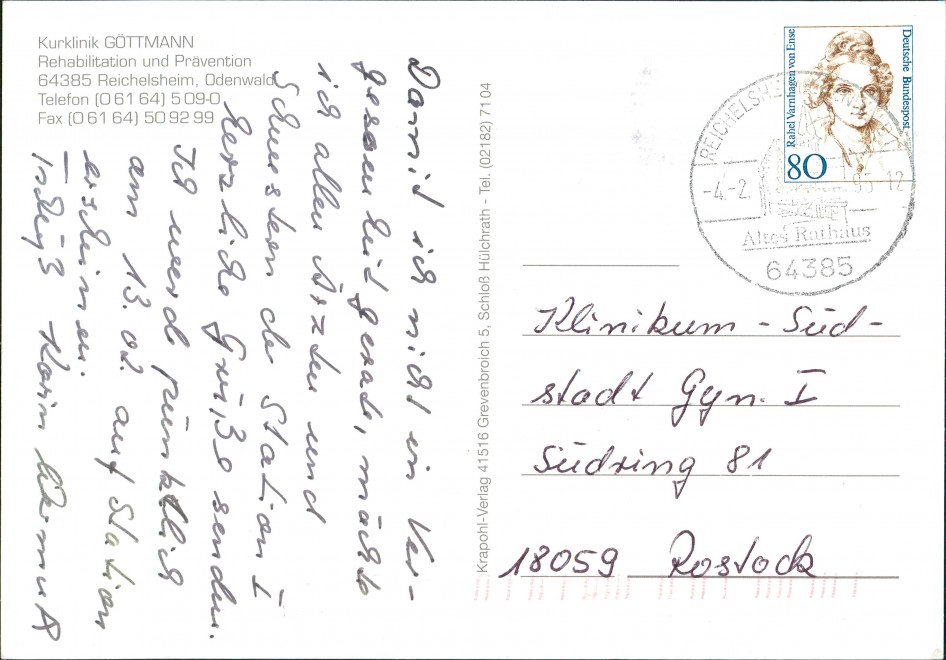 Kurklinik GÖTTMANN
Rehabilitation und Prävention
64385 Reichelsheim, Odenwald
Telefon (0 61 64) 5 09-0
Fax (0 61 64) 50 92 99
Damit ich nicht in Ver-
gessenheit gerate, möchte
ich allen Ärzten und
Schwestern der Station I
herzliche Grüße senden.
Ich werde pünktlich
am 13.02. auf Station
erscheinen.
Karin
Krapohl-Verlag 41516 Grevenbroich 5, Schloß Hülchrath - Tel. (02182) 71 04
Rahel Varnhagen von Ense
Deutsche Bundespost
80
REICHELSHEIM
-4.-2.
95-12
Altes Rathaus
64385
Klinikum - Süd-
stadt Gyn. I
Südring 81
18059 Rostock